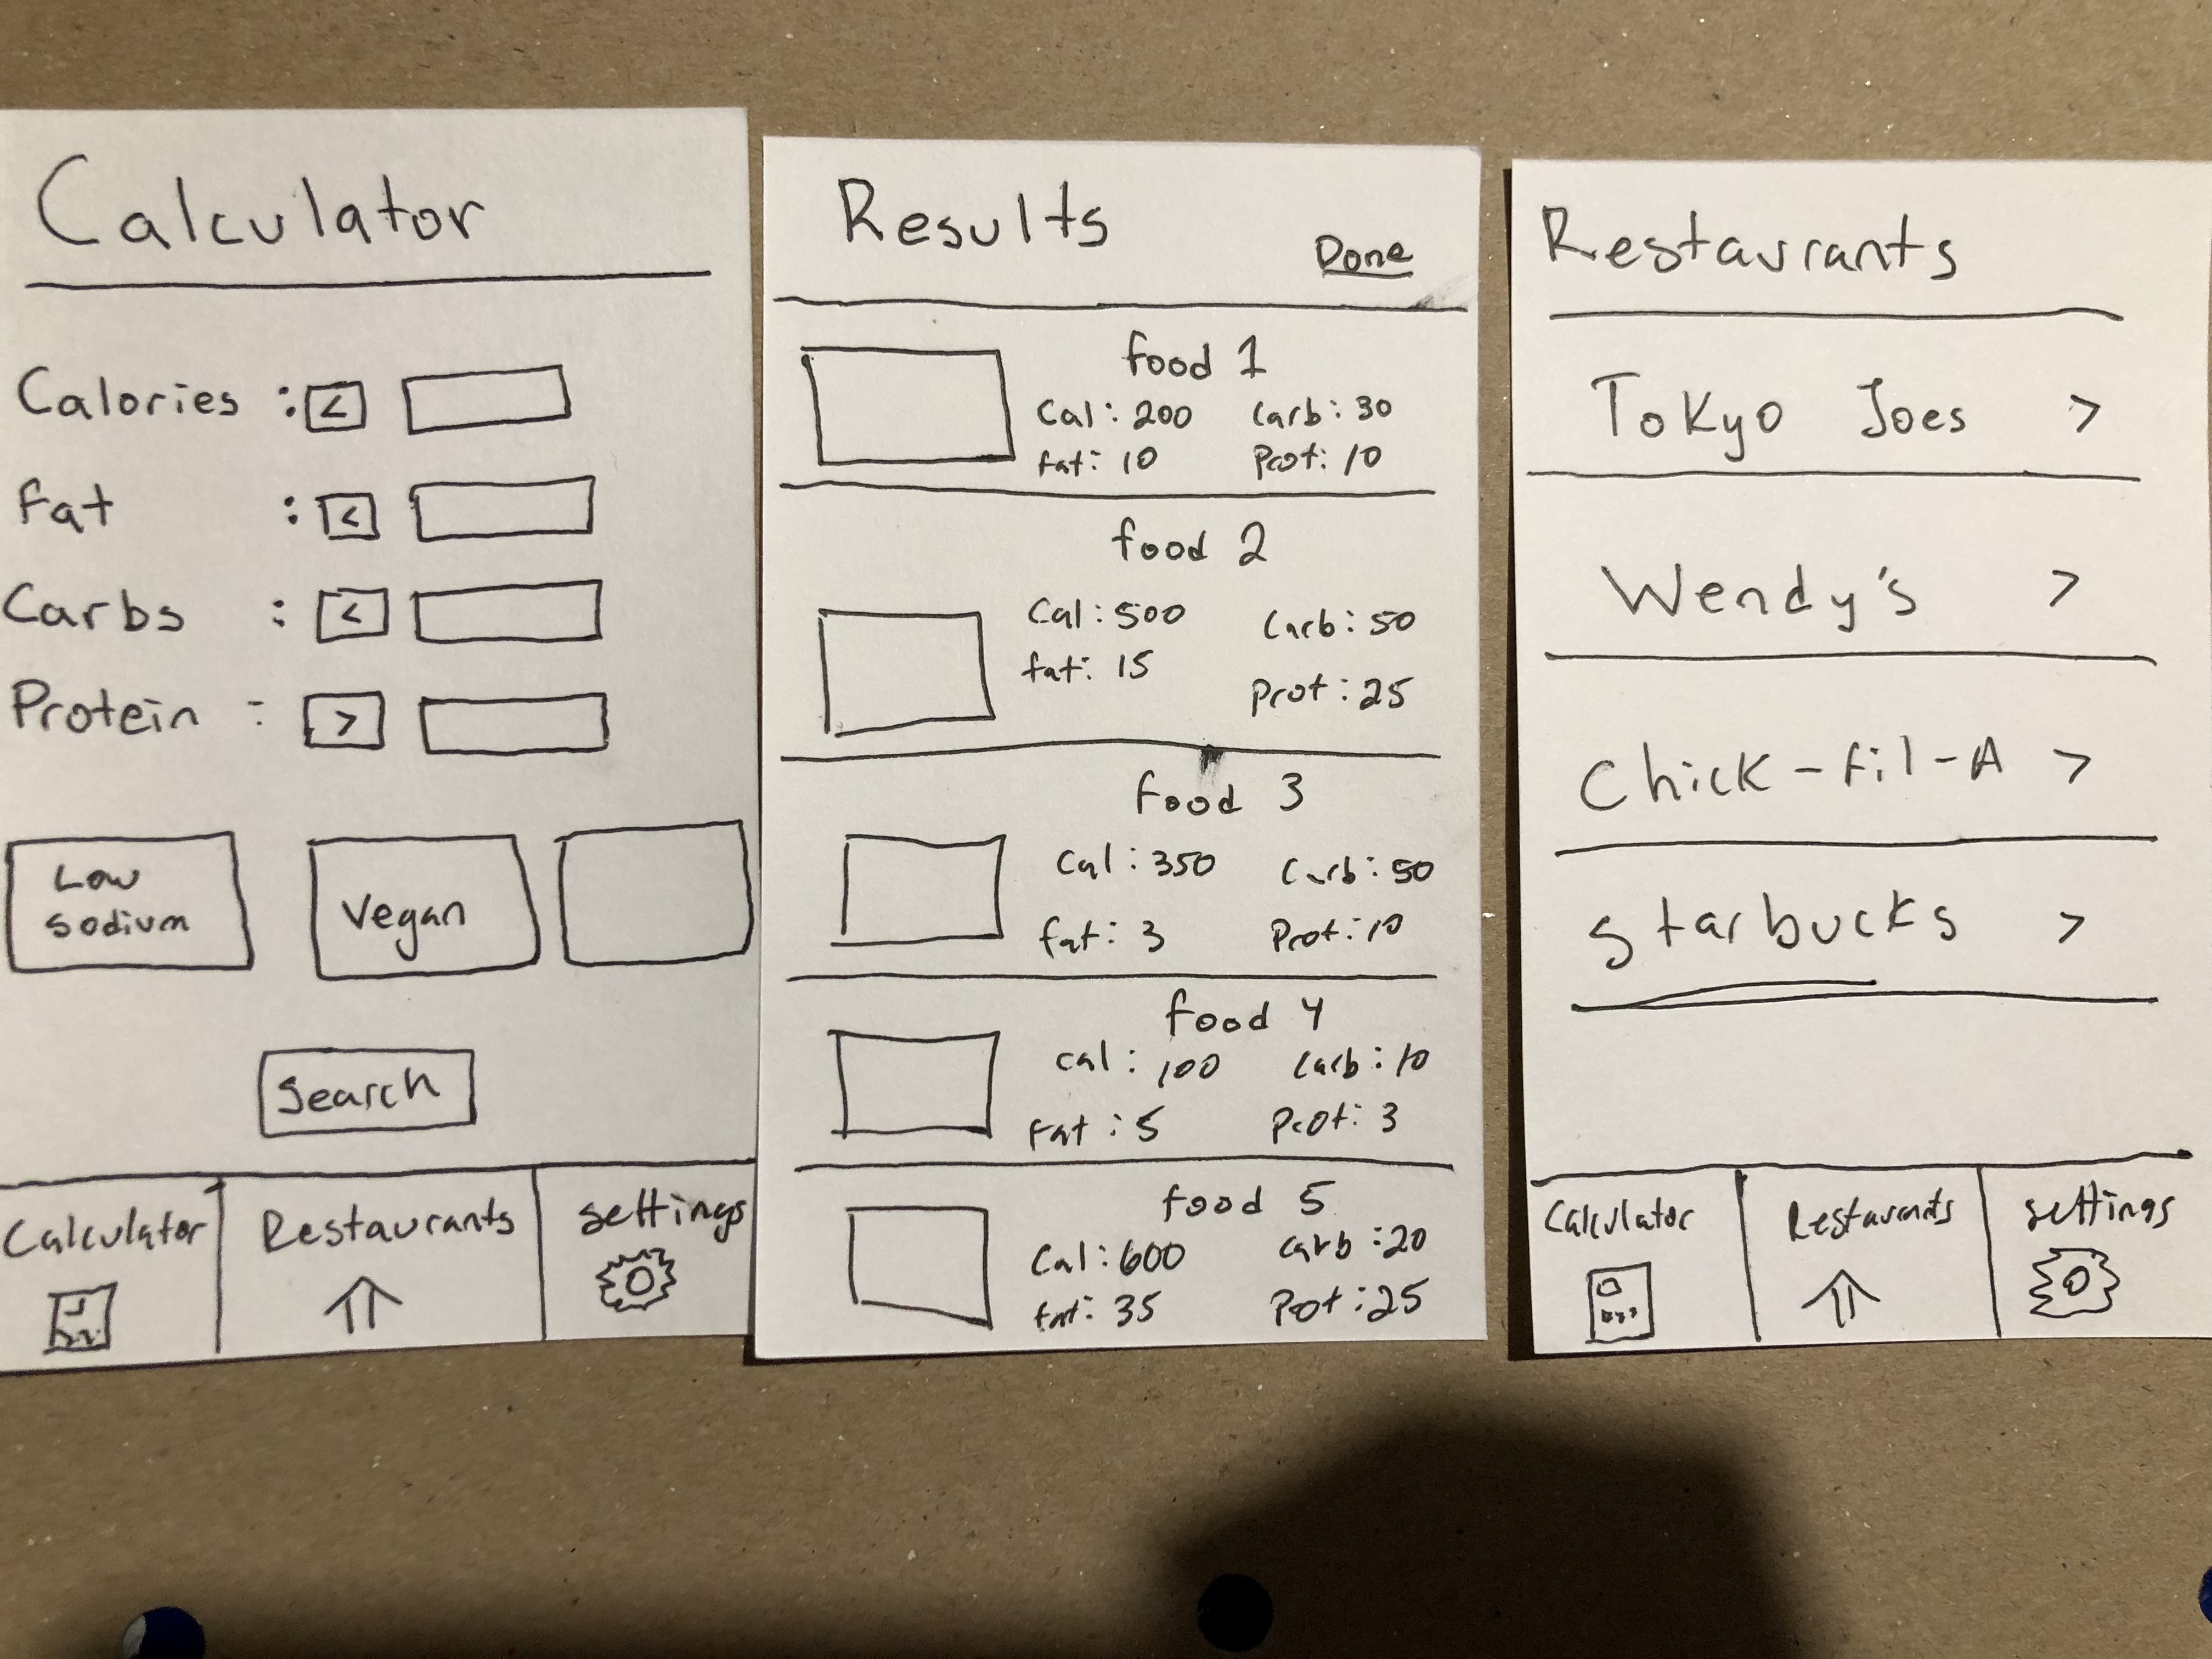 Calculator
Calories : <
Fat : <
Carbs : <
Protein : >
Low
sodium
Vegan
Search
Calculator Restaurants settings
Results
Done
food 1
Cal: 200 Carb: 30
fat: 10 Prot: 10
food 2
Cal: 500 Carb: 50
fat: 15
Prot: 25
food 3
Cal: 350 Carb: 50
fat: 3 Prot: 10
food 4
Cal: 100 Carb: 10
Fat: 5 Prot: 3
food 5
Cal: 600 Carb: 20
fat: 35 Prot: 25
Restaurants
Tokyo Joes >
Wendy's >
Chick-fil-A >
starbucks >
Calculator Restaurants settings